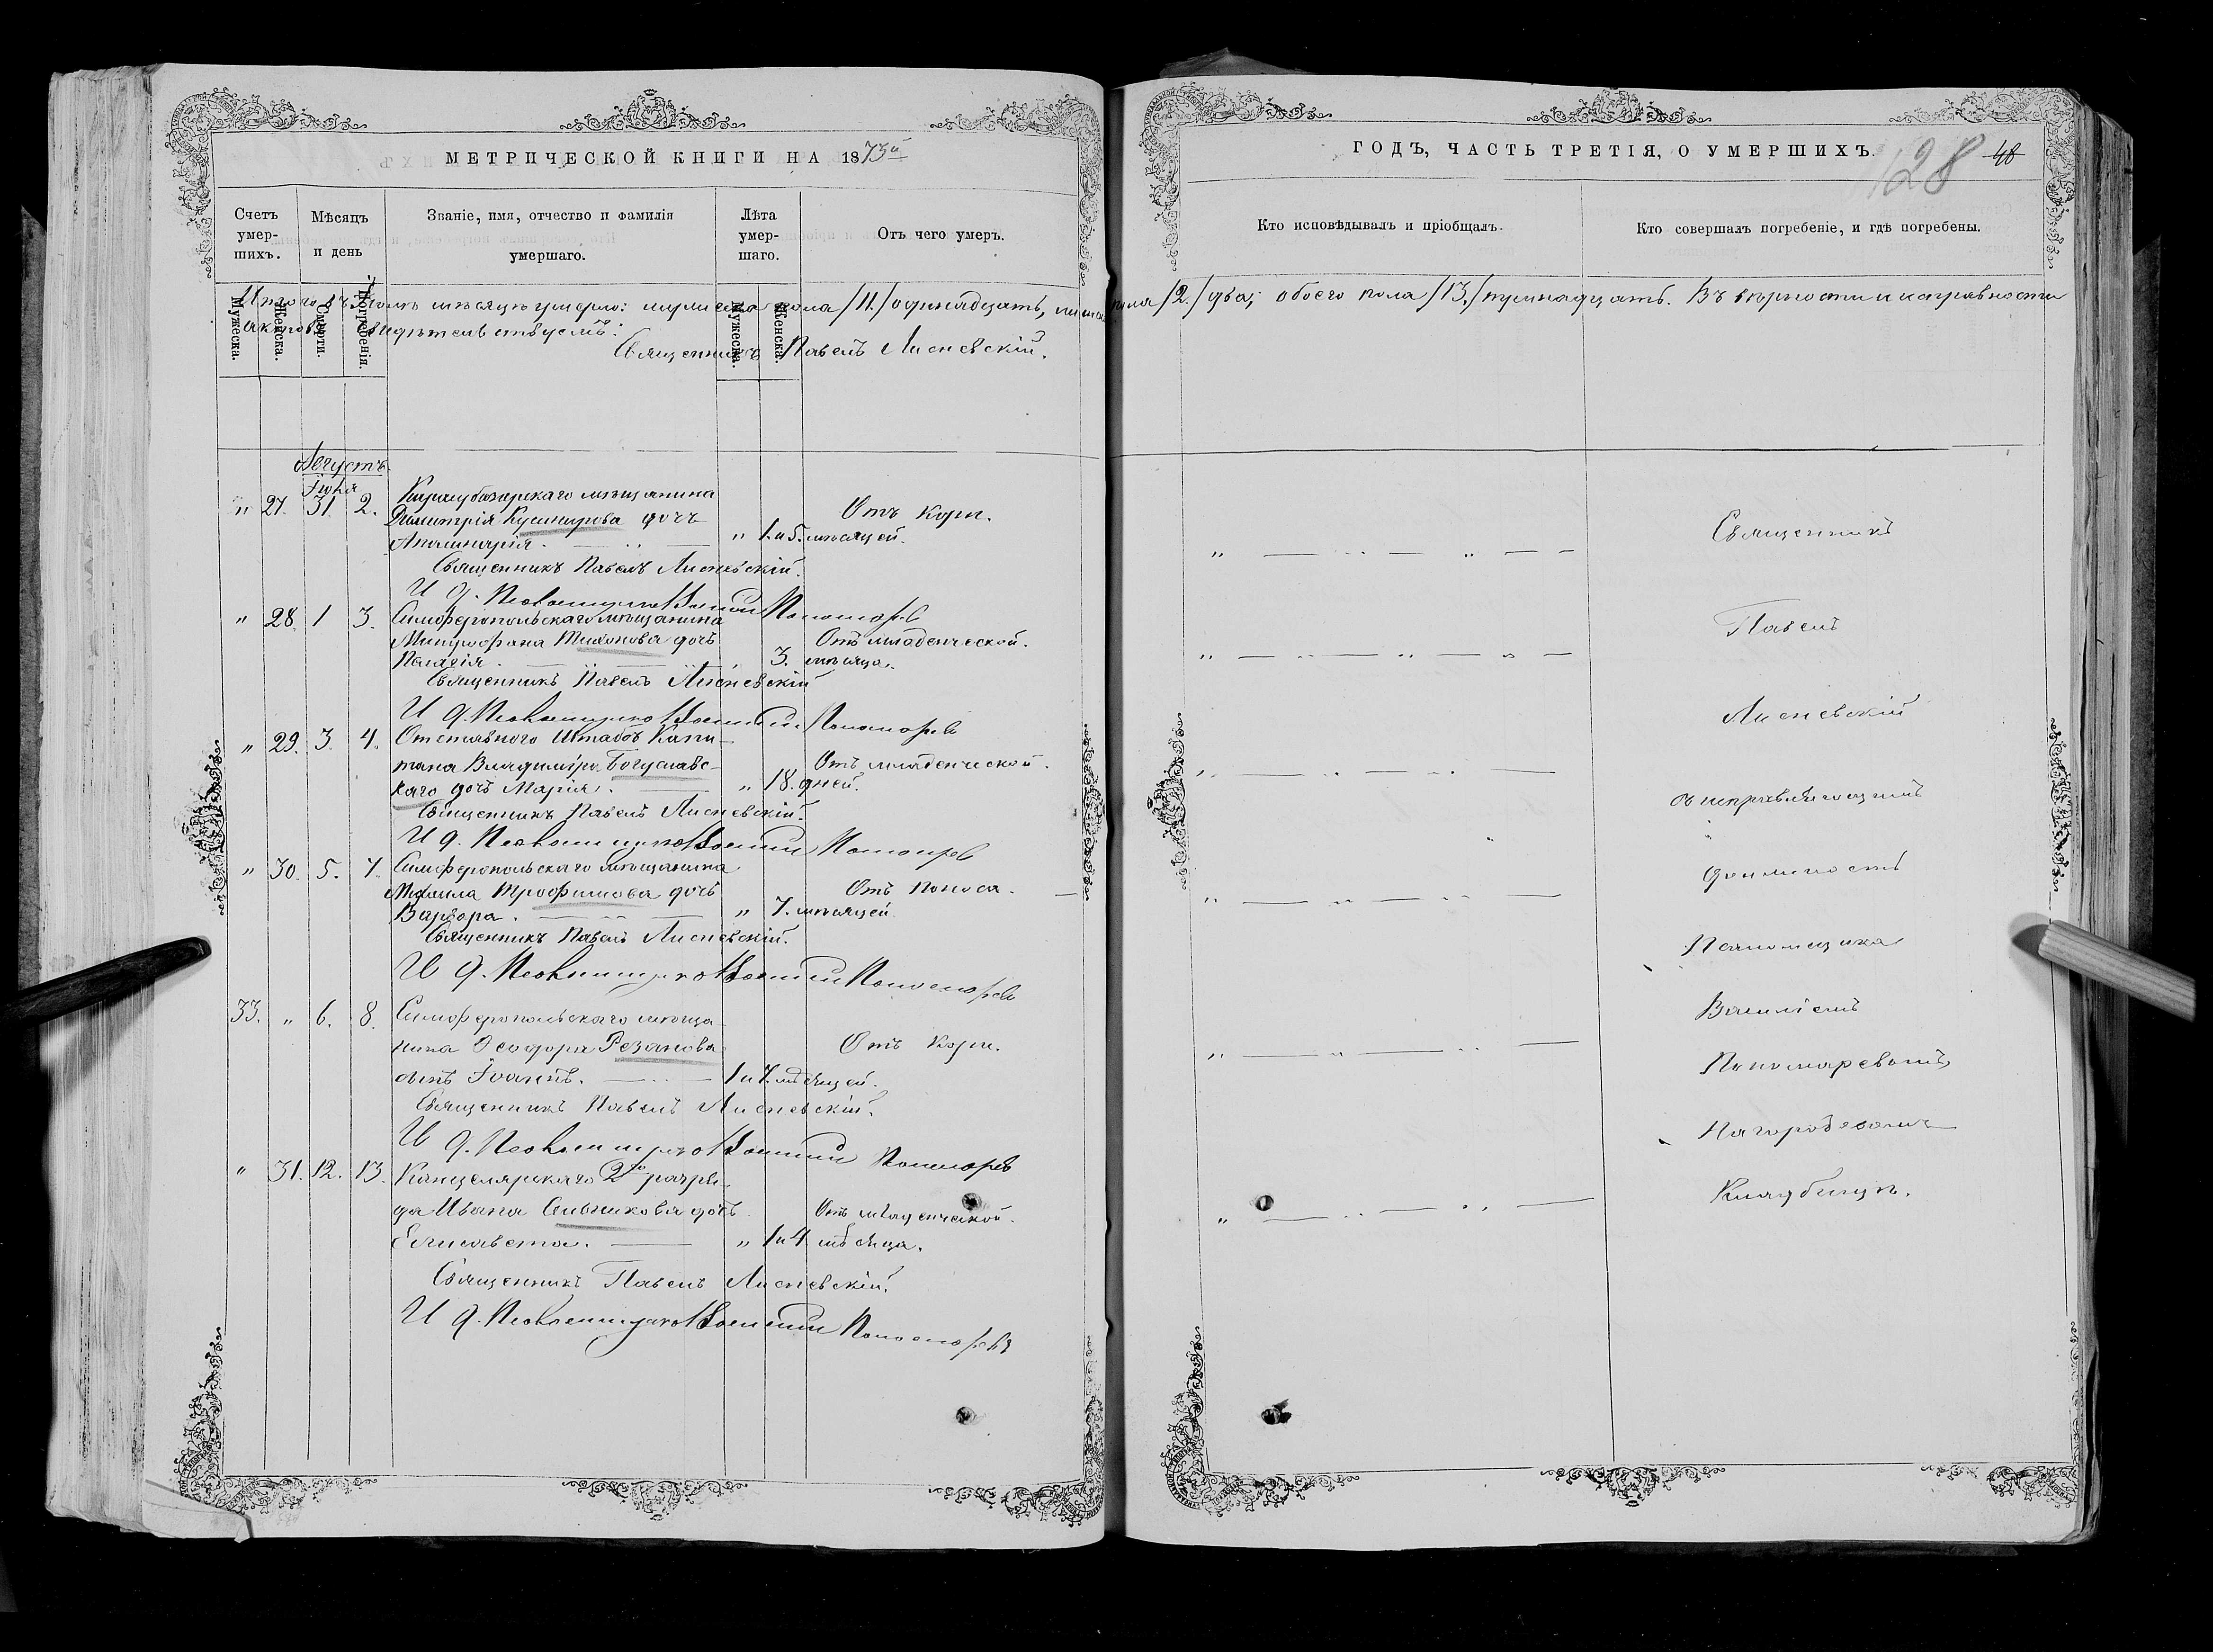 МЕТРИЧЕСКОЙ КНИГИ НА 1873й
ГОДЪ, ЧАСТЬ ТРЕТІЯ, О УМЕРШИХЪ.
128 48
Счетъ умер-шихъ.
Мѣсяцъ и день
Званіе, имя, отчество и фамилія умершаго.
Лѣта умер-шаго.
Отъ чего умеръ.
Кто исповѣдывалъ и пріобщалъ.
Кто совершалъ погребеніе, и гдѣ погребены.
Мужеска. Женска. Смерти. Погребенія. Мужеска. Женска.
Итого въ мѣсяцѣ умерло: мужеска пола /11./ одинадцать, пола /2./ два; обоего пола /13./ тринадцать. Въ вѣрности и исправности
актовъ свидѣтельствуемъ:
Священникъ Павелъ Лисневскій.
Августъ.
Іюля
" 27. 31. 2. Карасубазарскаго мѣщанина
Димитрія Кушнирова дочь
Отъ кори.
" 1. и 5. мѣсяцей.
Священникъ Павелъ Лисневскій.
И д. Псаломщика Василій Пономаревъ
" 28. 1 3. Симферопольскаго мѣщанина
Митрофана Тихонова дочь
Отъ младенческой.
Пелагія. " 3. мѣсяца.
Священникъ Павелъ Лисневскій
И д. Псаломщика Василій Пономаревъ
" 29. 3. 4. Отставного Штабсъ Капи-
тана Владиміра Богуславс-
Отъ младенческой.
каго дочь Марія. " 18. дней.
Священникъ Павелъ Лисневскій.
И д. Псаломщика Василій Пономаревъ
" 30. 5. 7. Симферопольскаго мѣщанина
Трофимова дочь
Отъ поноса.
Варвара. " 7. мѣсяцей
Священникъ Павелъ Лисневскій.
И д. Псаломщика Василій Пономаревъ
33. " 6. 8. Симферопольскаго мѣща-
нина Ѳеодора Резанова
Отъ кори.
сынъ Іоаннъ. 1 и 7. мѣсяцей.
Священникъ Павелъ Лисневскій.
И д. Псаломщика Василій Пономаревъ
" 31. 12. 13. Канцелярскаго 2го разря-
да Ивана дочь
Отъ младенческой.
Елисавета. " 1 и 4 мѣсяца.
Священникъ Павелъ Лисневскій.
И д. Псаломщика Василій Пономаревъ
Священникъ
Павелъ
Лисневскій
съ исправляющимъ
должность
Псаломщика
Василіемъ
Пономаревымъ
На городскомъ
Кладбищѣ.